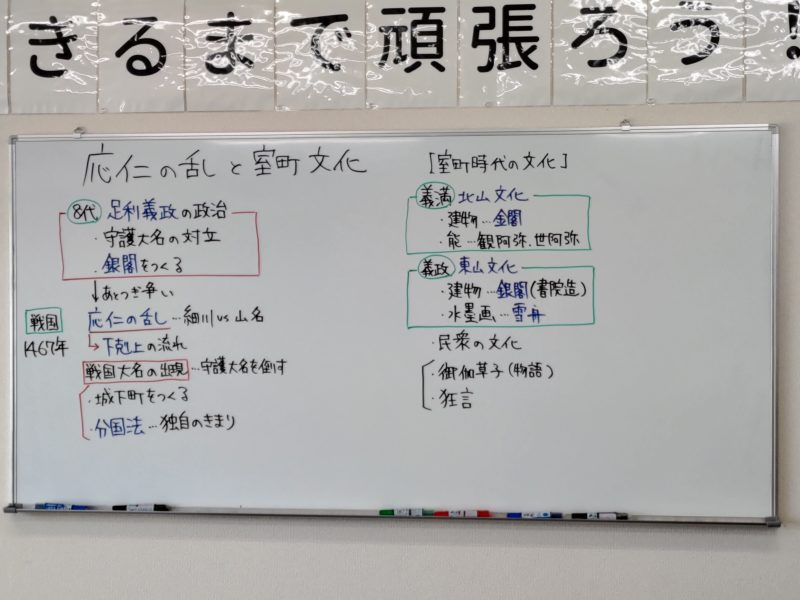 きるまで頑張ろう!
応仁の乱と室町文化
8代 足利義政の政治
・守護大名の対立
・銀閣をつくる
↓あとつぎ争い
戦国 応仁の乱…細川vs山名
1467年 →下剋上の流れ
戦国大名の出現…守護大名を倒す
・城下町をつくる
・分国法…独自のきまり
[室町時代の文化]
義満 北山文化
・建物…金閣
・能…観阿弥、世阿弥
義政 東山文化
・建物…銀閣(書院造)
・水墨画…雪舟
・民衆の文化
・御伽草子(物語)
・狂言